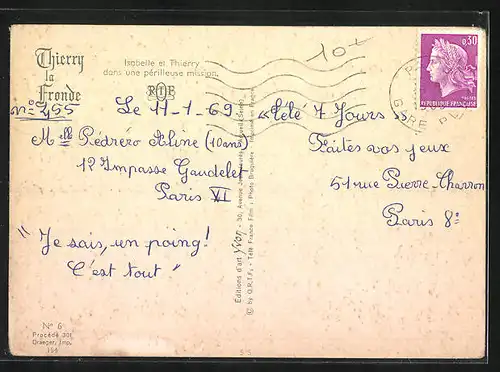 Thierry
la
Fronde
Isabelle et Thierry
dans une périlleuse mission.
RTF
10+
0,30
POSTES
REPUBLIQUE FRANÇAISE
GARE
n° 455
Le 11-1-69
Mlle Pédréro Aline (10ans)
12 Impasse Gaudelet
Paris VI
"Je sais, un poing!
C'est tout"
«Télé 7 Jours»
Faites vos jeux
51 rue Pierre-Charron
Paris 8e
Editions d'art Yvon - 30, Avenue
© by O.R.T.F. - Télé France Film - Photo
N° 6
Procédé 301
Draeger, Imp.